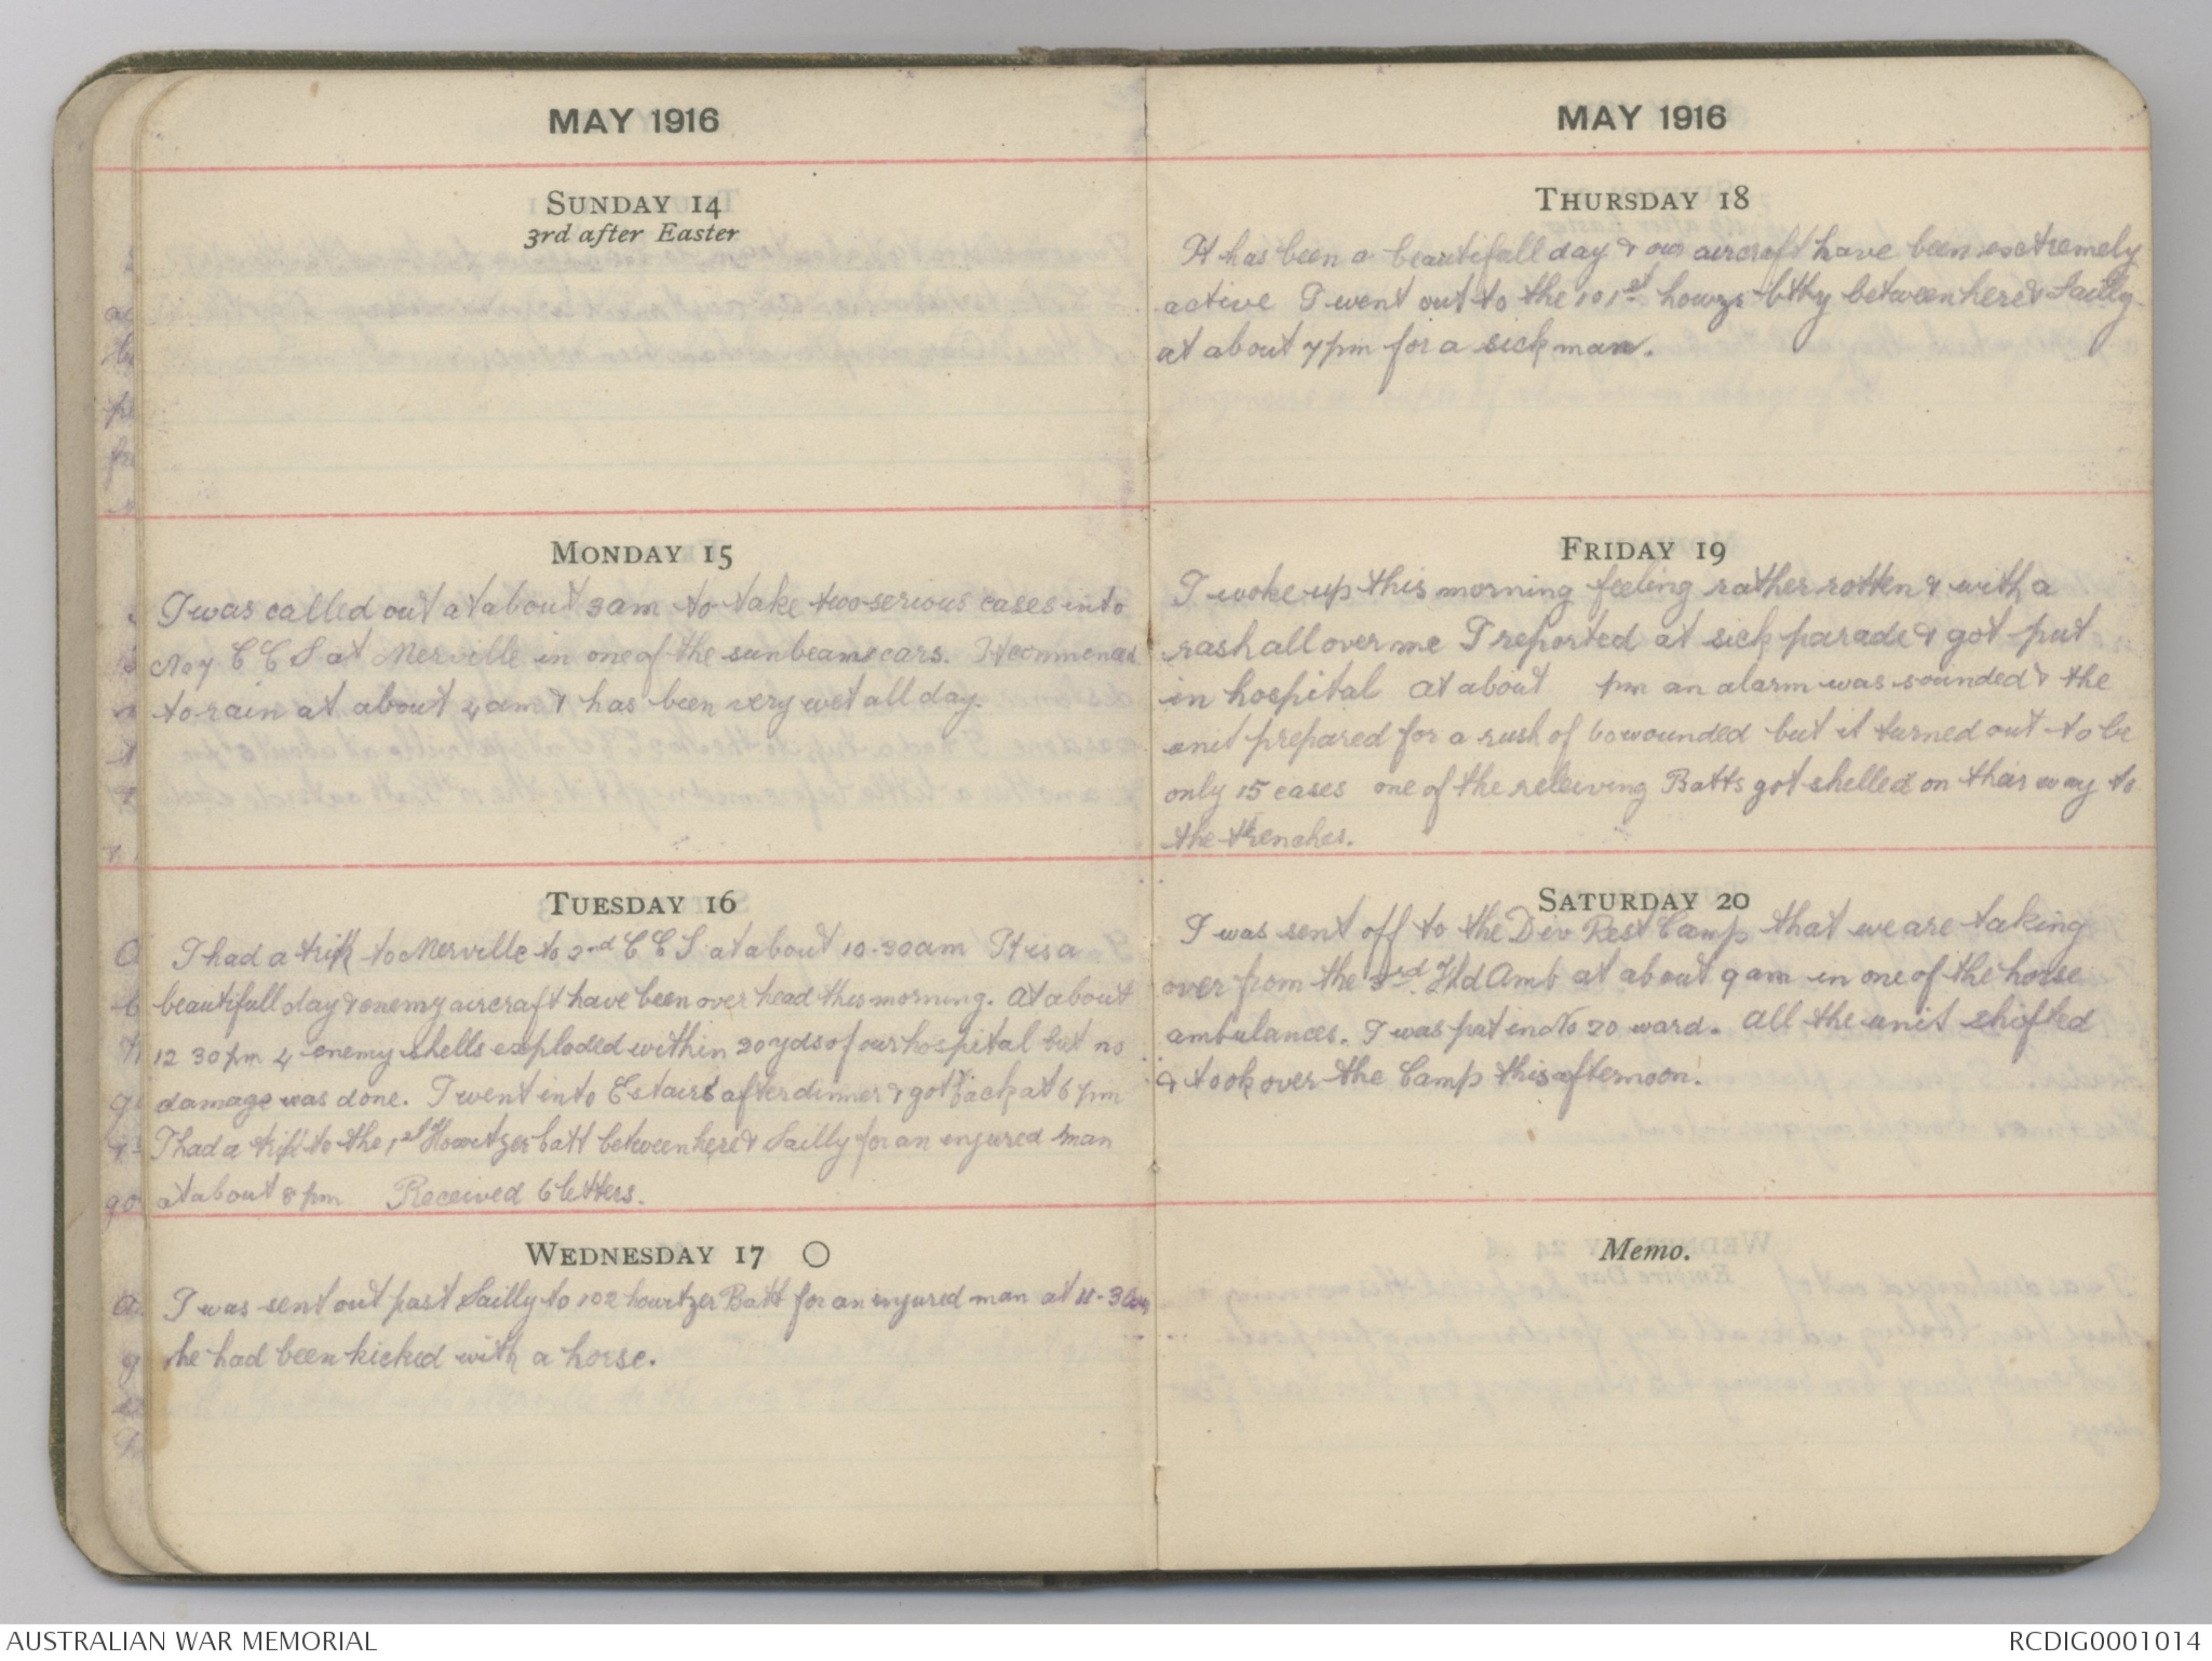 MAY 1916
SUNDAY 14
3rd after Easter
MONDAY 15
I was called out at about 3am to take two serious cases into
No 7 C C S at Merville in one of the sunbeam cars. It commenced
to rain at about 4 am & has been very wet all day.
TUESDAY 16
I had a trip to Merville to 2nd C C S at about 10-30am It is a
beautifull day & enemy aircraft have been over head this morning. At about
12 30 pm 4 enemy shells exploded within 20 yds of our hospital but no
damage was done. I went into Estairs after dinner & got back at 6 pm
I had a trip to the 1st Howitzer batt between here & Sailly for an injured man
at about 8 pm Received 6 letters.
WEDNESDAY 17
I was sent out past Sailly to 102 howitzer Batt for an injured man at 11-30
he had been kicked with a horse.
MAY 1916
THURSDAY 18
It has been a beautifull day & our aircraft have been extremely
active I went out to the 101st howzr btty between here & Sailly
at about 7 pm for a sick man.
FRIDAY 19
I woke up this morning feeling rather rotten & with a
rash all over me I reported at sick parade & got put
in hospital at about pm an alarm was sounded & the
unit prepared for a rush of 60 wounded but it turned out to be
only 15 cases one of the releiving Batts got shelled on their way to
the trenches.
SATURDAY 20
I was sent off to the Div Rest Camp that we are taking
over from the 3rd. Fld Amb at about 9 am in one of the horse
ambulances. I was put in No 20 ward. All the unit shifted
& took over the Camp this afternoon.
Memo.
AUSTRALIAN WAR MEMORIAL
RCDIG0001014